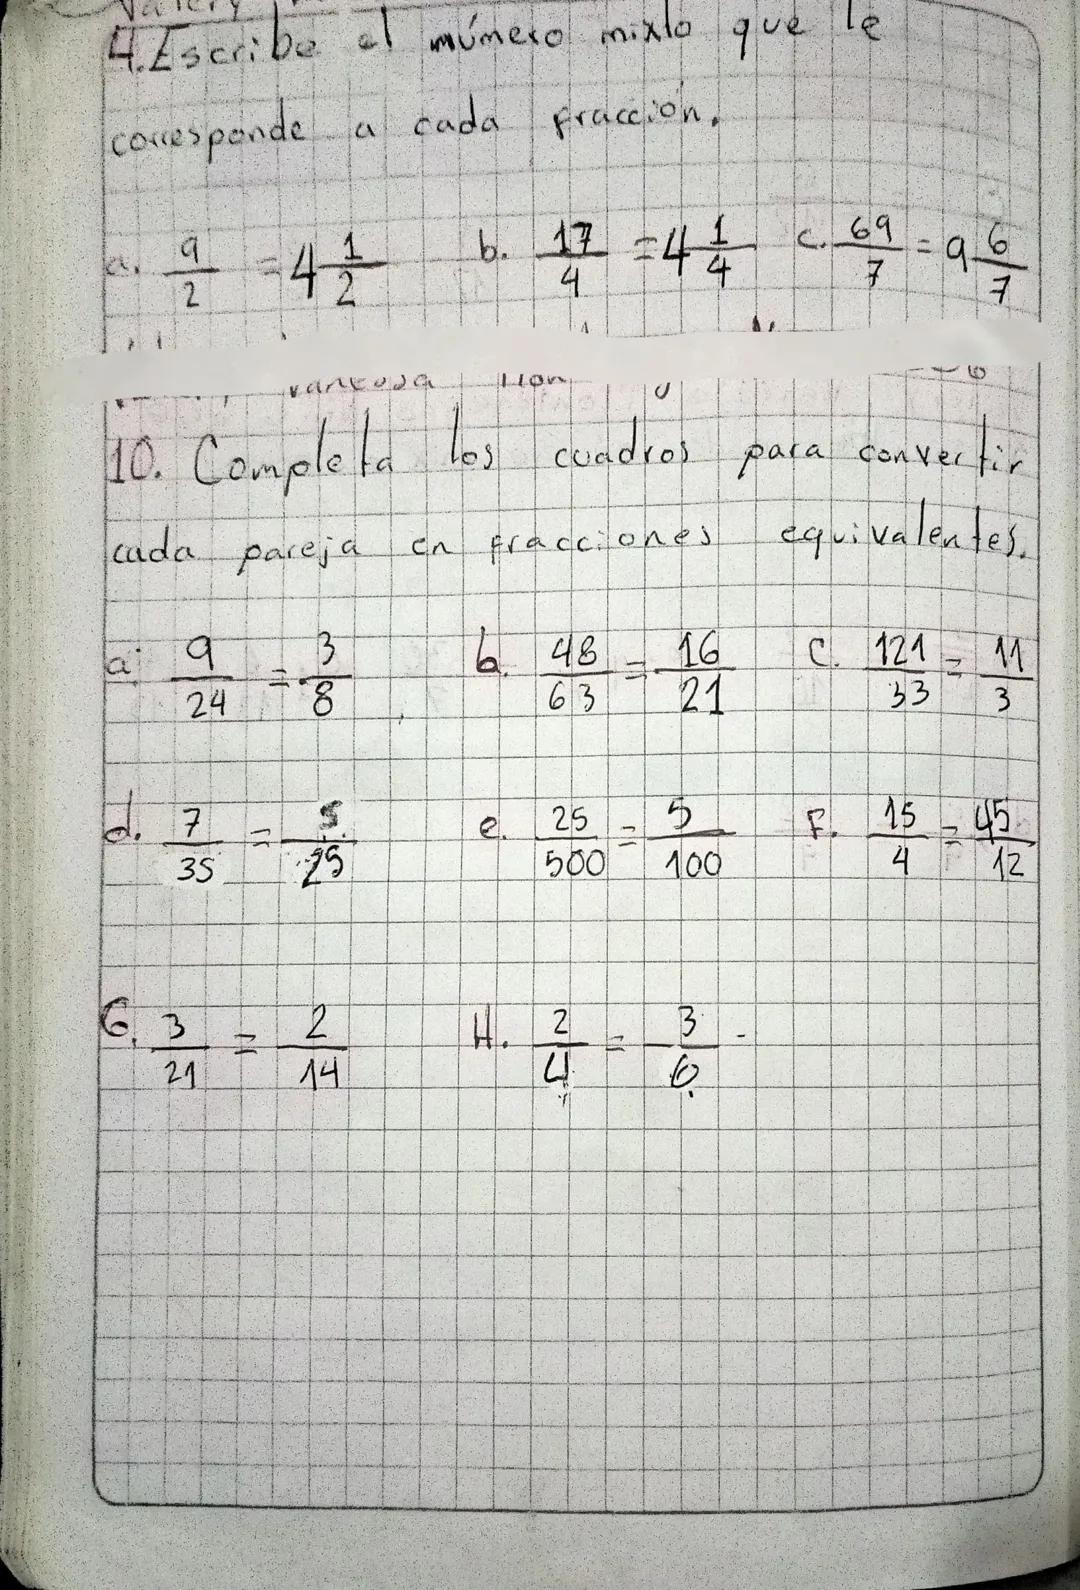 4. Escribe el número mixto que le
corresponde a cada fracción.
a. 9/2 = 4 1/2 b. 17/4 = 4 1/4 c. 69/7 = 9 6/7
10. Completa los cuadros para convertir
cada pareja en fracciones equivalentes.
a. 9/24 = 3/8 b. 48/63 = 16/21 C. 121/33 = 11/3
d. 7/35 = 5/25 e. 25/500 = 5/100 F. 15/4 = 45/12
G. 3/21 = 2/14 H. 2/4 = 3/6